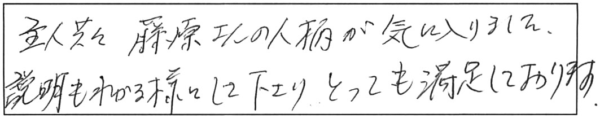 主人共々 藤原さんの人柄が気に入りまして、
説明もわかる様にして下さり とっても満足しております.